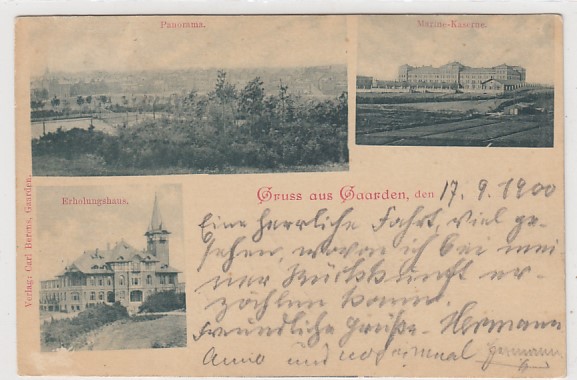 Panorama.
Marine-Kaserne.
Erholungshaus.
Verlag: Carl Berens, Gaarden.
Gruss aus Gaarden, den 17. 9. 1900
Eine herrliche Fahrt, viel ge-
sehen, wovon ich bei mei
ner Rückkunft er-
zählen kann.
Freundliche Grüße Hermann
und nocheinmal Hermann